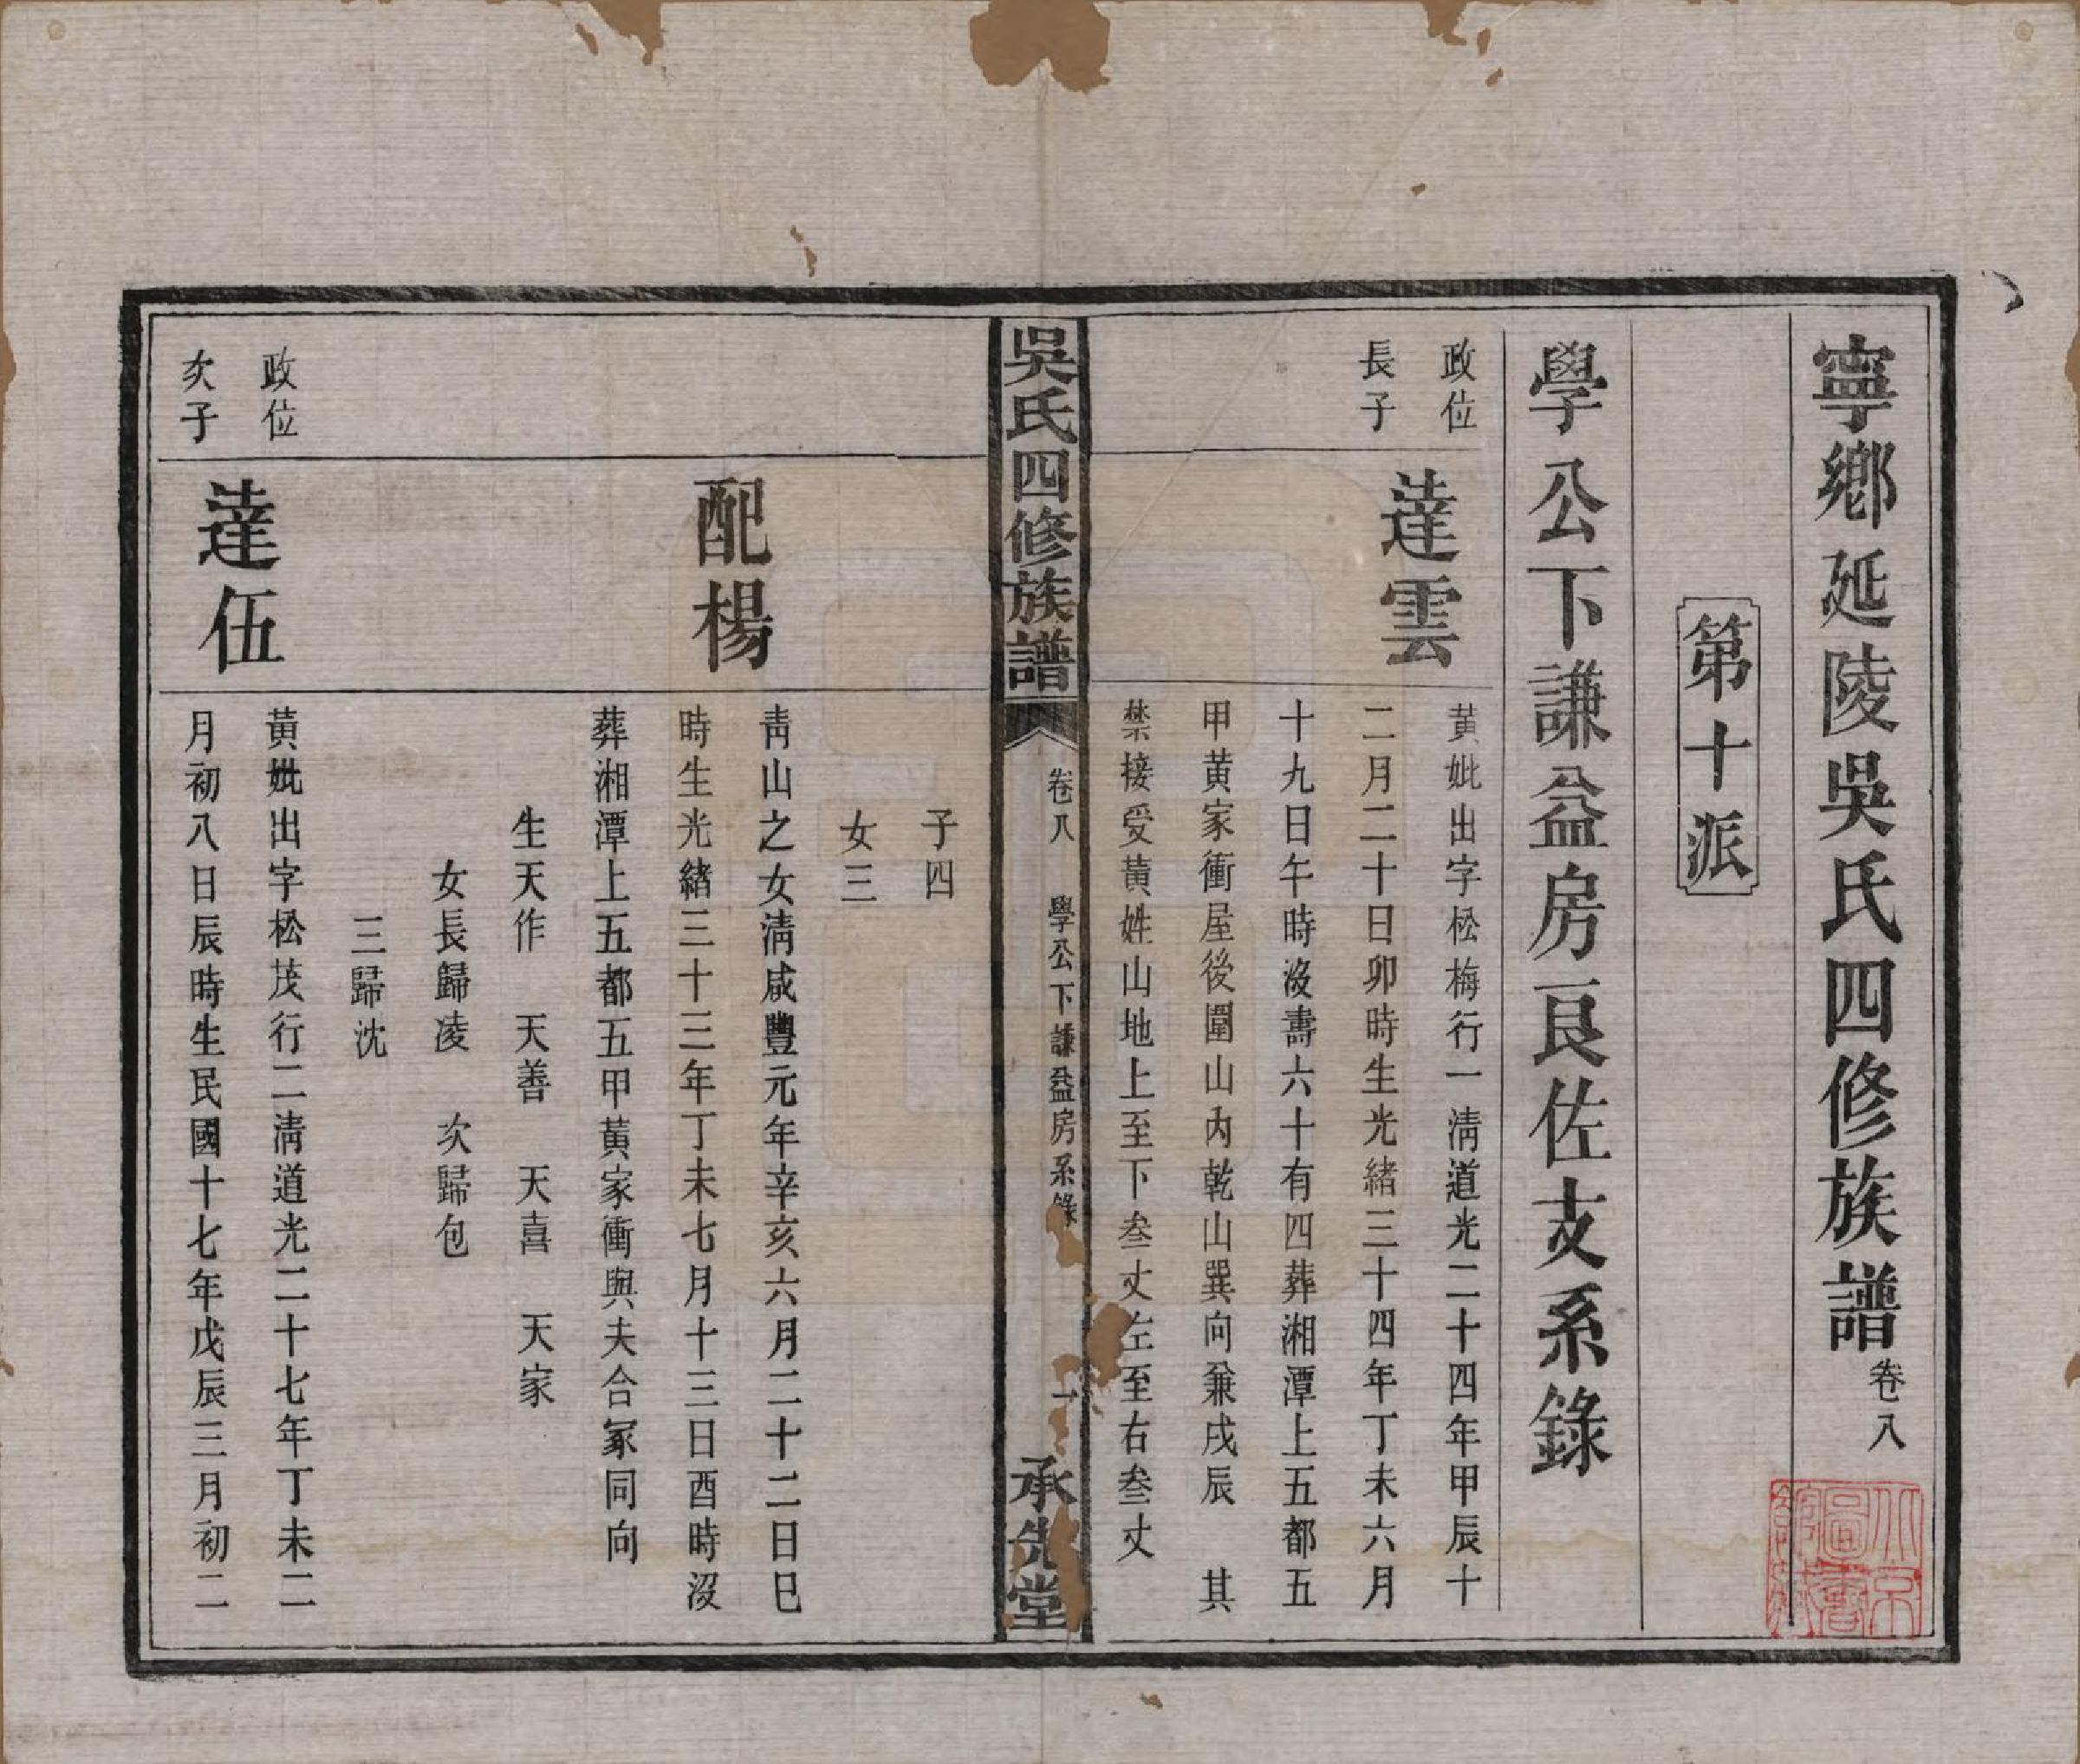 寧鄉延陵吳氏四修族譜卷八
第十派
學公下謙益房良佐支系錄
政位
長子
達雲
黃妣出字松梅行一淸道光二十四年甲辰十
二月二十日卯時生光緒三十四年丁未六月
十九日午時歿壽六十有四葬湘潭上五都五
甲黃家衝屋後圍山內乾山巽向兼戌辰　其
禁接受黃姓山地上至下叁丈左至右叁丈
吳氏四修族譜
卷八
學公下謙益房系錄
一
承先堂
子四
女三
配楊
靑山之女淸咸豐元年辛亥六月二十二日巳
時生光緒三十三年丁未七月十三日酉時歿
葬湘潭上五都五甲黃家衝與夫合冢同向
生天作　天善　天喜　天家
女長歸凌　次歸包
三歸沈
政位
次子
達伍
黃妣出字松茂行二淸道光二十七年丁未二
月初八日辰時生民國十七年戊辰三月初二